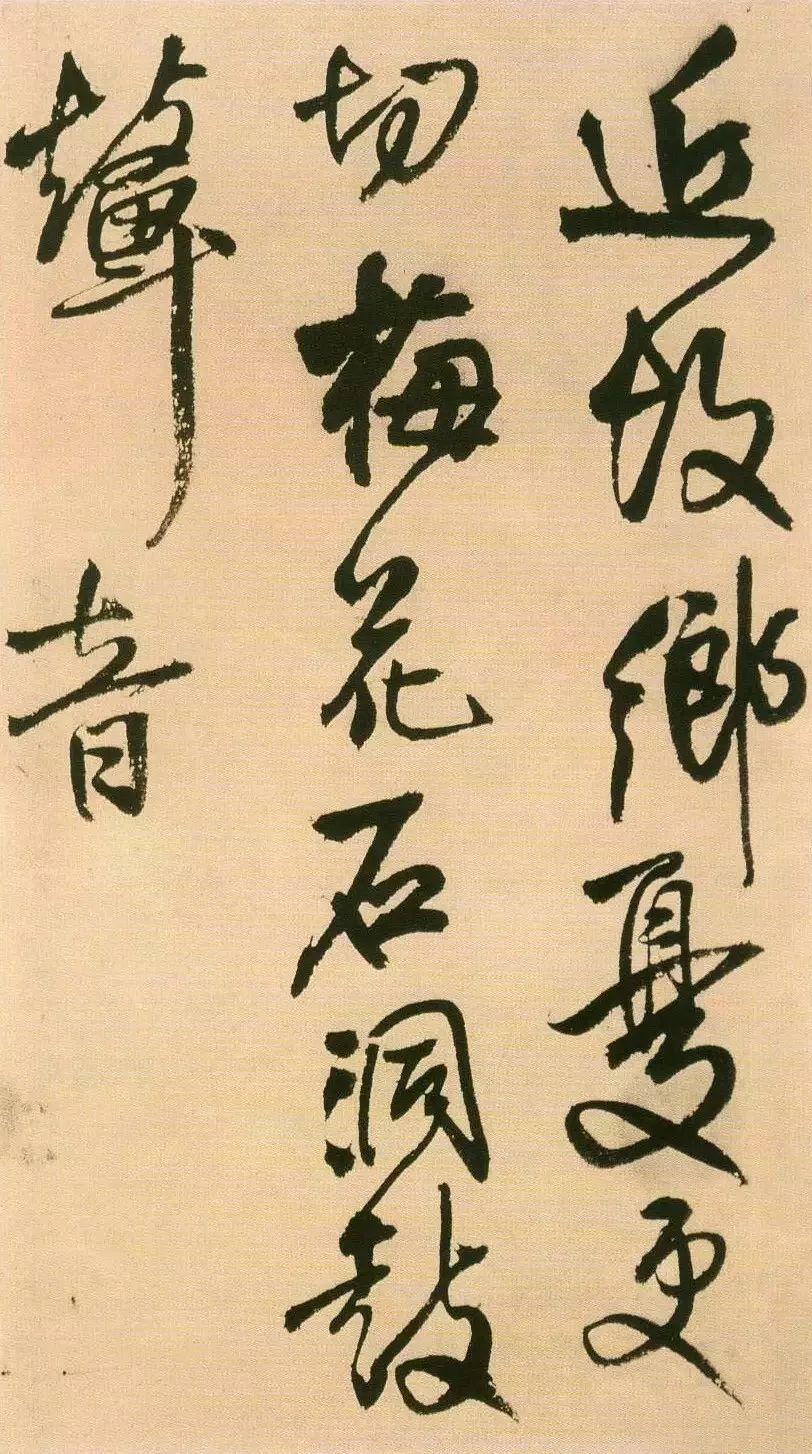 近故鄉憂更
切梅花石洞鼓
聲音